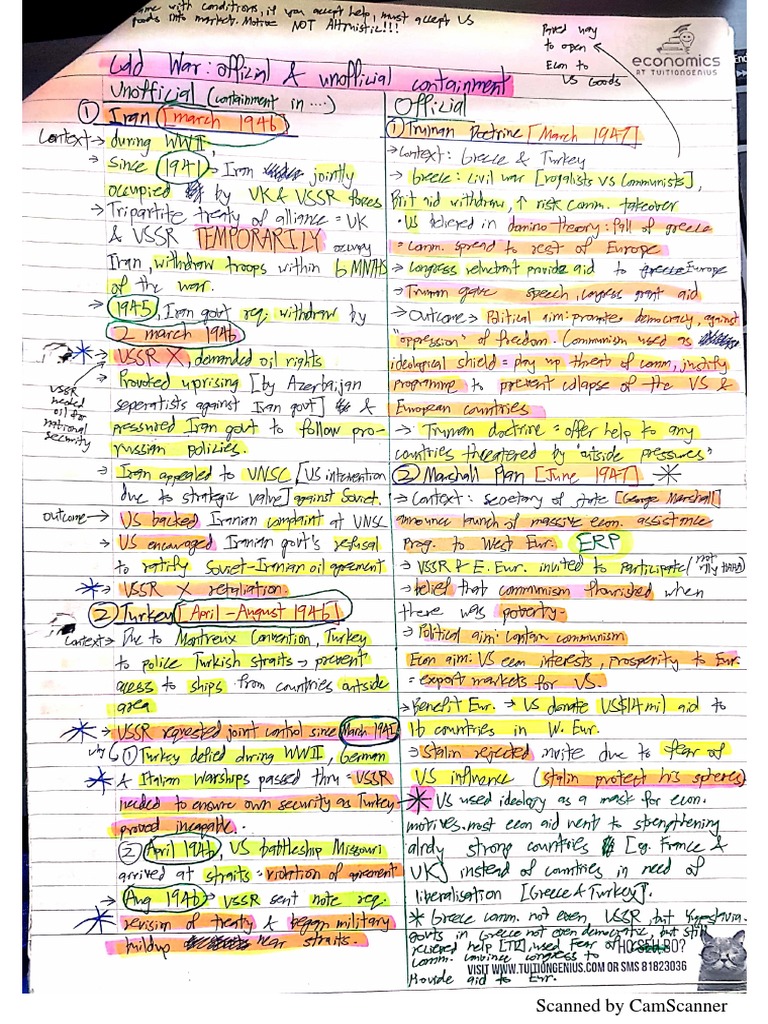 come with conditions, if you accept help, must accept US
goods into market. Motive NOT Altruistic!!!
Paved way
to open
Econ to
US Goods
economics
AT TUITIONGENIUS
Cold War: official & unofficial containment
Unofficial (containment in ....)
① Iran [march 1946]
Context → during WWII,
→ since 1941 → Iran jointly
occupied by UK & USSR forces
→ Tripartite treaty of alliance = UK
& USSR TEMPORARILY occupy
Iran, withdraw troops within 6 MNTHS
of the war.
→ 1945, Iran govt req. withdraw by
2 march 1946
* → USSR X, demanded oil rights
USSR
needed
oil for
national
security
→ Provoked uprising [by Azerbaijan
seperatists against Iran govt] & 
pressured Iran govt to follow pro-
russian policies.
→ Iran appealed to UNSC [US intervention
due to strategic value] against Soviet.
outcome → US backed Iranian complaint at UNSC
→ US encouraged Iranian govt's refusal
to ratify Soviet-Iranian oil agreement
* → USSR X retaliation.
② Turkey [April - August 1946]
Context → Due to Montreux Convention, Turkey
to police Turkish straits → prevent
access to ships from countries outside
area
* → USSR requested joint control since March 1945
why ① Turkey defied during WWII, German
* & Italian warships passed thru = USSR
needed to ensure own security as Turkey
proved incapable.
② April 1946, US battleship Missouri
arrived at straits = violation of agreement
→ Aug 1946 → USSR sent note req.
* revision of treaty & began military
buildup near straits.
Official
① Truman Doctrine [March 1947]
→ Context: Greece & Turkey
→ Greece: civil war [royalists vs Communists],
Brit aid withdraw, ↑ risk comm. takeover
• US believed in domino theory: fall of greece
= comm. spread to rest of Europe
→ Congress reluctant provide aid to Europe
→ Truman gave speech, congress grant aid
→ Outcome: → Political aim: promotes democracy, against
"oppression" of freedom. Communism used as
ideological shield = play up threat of comm, justify
programme to prevent collapse of the US &
European countries
→ Truman doctrine = offer help to any
countries threatened by "outside pressures"
② Marshall Plan [June 1947] *
→ Context: secretary of state [George Marshall]
announce launch of massive econ. assistance
Prog. to West Eur. ERP
→ USSR & E. Eur. invited to participate (not
→ belief that communism flourished when
there was poverty.
→ Political aim: contain communism
Econ aim: US econ interests, prosperity to Eur.
= export markets for US.
→ Benefit Eur. → US donate US$14 mil aid to
16 countries in W. Eur.
→ Stalin rejected invite due to fear of
US influence (stalin protect his spheres)
* US used ideology as a mask for econ.
motives. most econ aid went to strengthening
alrdy strong countries [eg. France &
UK] instead of countries in need of
liberalisation [Greece & Turkey].
* Greece comm. not even USSR, but Yugoslavia.
govts in Greece not even democratic, but still
recieved help [TD], used fear of
comm. convince congress to
Provide aid to Eur.
HO SEH BO?
VISIT WWW.TUITIONGENIUS.COM OR SMS 81823036
Scanned by CamScanner